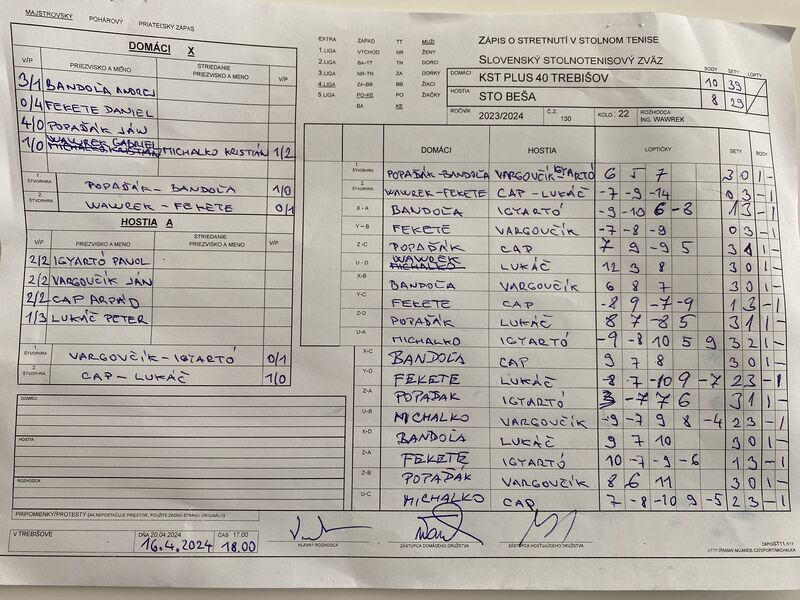 MAJSTROVSKÝ POHÁROVÝ PRIATEĽSKÝ ZÁPAS
DOMÁCI X
V/P PRIEZVISKO A MÉNO STRIEDANIE PRIEZVISKO A MÉNO V/P
3/1 BANDOĽA ANDREJ
0/4 FEKETE DANIEL
4/0 POPAĎÁK JÁN
1/0 WAWREK GABRIEL MICHALKO KRISTIÁN 1/2
1. ŠTVORHRA POPAĎÁK - BANDOĽA 1/0
2. ŠTVORHRA WAWREK - FEKETE 0/1
HOSTIA A
V/P PRIEZVISKO A MENO STRIEDANIE PRIEZVISKO A MENO V/P
2/2 IGYARTÓ PAVOL
2/2 VARGOVČÍK JÁN
2/2 CAP ARPÁD
1/3 LUKÁČ PETER
1. ŠTVORHRA VARGOVČÍK - IGYARTÓ 0/1
2. ŠTVORHRA CAP - LUKÁČ 1/0
DOMÁCI
HOSTIA
ROZHODCA
PRIPOMIENKY/PROTESTY (AK NEPOSTAČUJE PRIESTOR, POUŽITE ZADNÚ STRANU ORIGINÁLU)
V TREBIŠOVE DŇA 20.04.2024 ČAS 17.00
16.4.2024 18.00
HLAVNÝ ROZHODCA ZÁSTUPCA DOMÁCEHO DRUŽSTVA ZÁSTUPCA HOSŤUJÚCEHO DRUŽSTVA
EXTRA ZÁPAD TT MUŽI
1.LIGA VÝCHOD NR ŽENY
2.LIGA BA-TT TN DORCI
3.LIGA NR-TN ZA DORKY
4.LIGA ZA-BB BB ŽIACI
5.LIGA PO-KE PO ŽIAČKY
BA KE
ZÁPIS O STRETNUTÍ V STOLNOM TENISE
SLOVENSKÝ STOLNOTENISOVÝ ZVÄZ
BODY SETY LOPTY
DOMÁCI KST PLUS 40 TREBIŠOV 10 39
HOSTIA STO BEŠA 8 29
ROČNÍK 2023/2024 Č.Z. 130 KOLO . 22 ROZHODCA ING. WAWREK
DOMÁCI HOSTIA LOPTIČKY SETY BODY
1. ŠTVORHRA POPAĎÁK-BANDOĽA VARGOVČÍK IGYARTÓ 6 5 7 3 0 1 -
2. ŠTVORHRA WAWREK-FEKETE CAP - LUKÁČ -7 -9 -14 0 3 - 1
X - A BANDOĽA IGYARTÓ -9 -10 6 -8 1 3 - 1
Y - B FEKETE VARGOVČÍK -7 -8 -9 0 3 - 1
Z - C POPAĎÁK CAP 7 9 -9 5 3 1 1 -
U - D WAWREK LUKÁČ 12 3 8 3 0 1 -
X-B BANDOĽA VARGOVČÍK 6 8 7 3 0 1 -
Y-C FEKETE CAP -8 9 -7 -9 1 3 - 1
Z-D POPAĎÁK LUKÁČ 8 7 -8 5 3 1 1 -
U-A MICHALKO IGYARTÓ -9 -8 10 5 9 3 2 1 -
X-C BANDOĽA CAP 9 7 8 3 0 1 -
Y-D FEKETE LUKÁČ -8 7 -10 9 -7 2 3 - 1
Z-A POPAĎÁK IGYARTÓ 3 -7 7 6 3 1 1 -
U-B MICHALKO VARGOVČÍK -9 -7 9 8 -4 2 3 - 1
X-D BANDOĽA LUKÁČ 9 7 10 3 0 1 -
Z-A FEKETE IGYARTÓ 10 -7 -9 -6 1 3 - 1
Z-B POPAĎÁK VARGOVČÍK 8 6 11 3 0 1 -
U-C MICHALKO CAP 7 -8 -10 9 -5 2 3 - 1